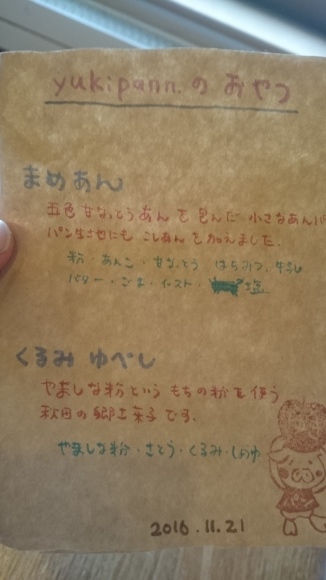 yukipann.のおやつ
まめあん
五色甘なっとうあんを包んだ小さなあんパ
パン生地にもこしあんを加えました。
粉・あんこ・甘なっとう はちみつ、牛乳
バター・ごま・イースト・塩
くるみゆべし
やましな粉というもちの粉を使う
秋田の郷土菓子です。
やましな粉・さとう・くるみ・しょうゆ
2016.11.21